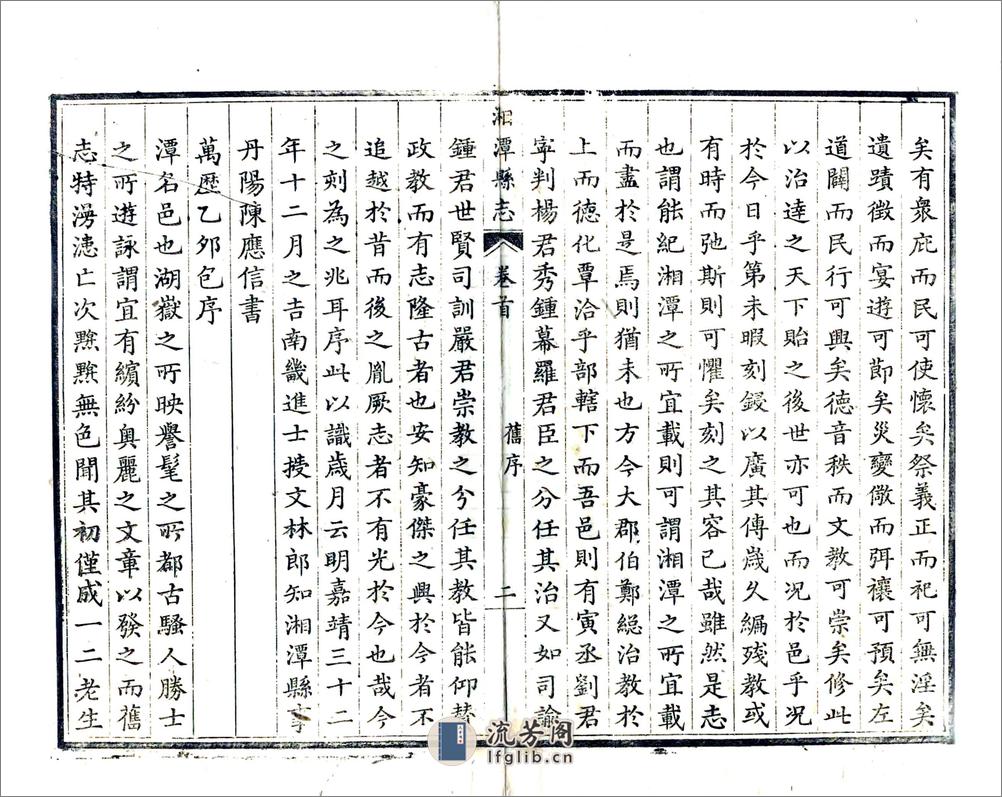 矣有衆庇而民可使懷矣祭義正而祀可無淫矣
遺蹟徵而宴遊可節矣災變儆而弭禳可預矣左
道闢而民行可興矣德音秩而文教可崇矣修此
以治達之天下貽之後世亦可也而况於邑乎况
於今日乎第未暇刻鋟以廣其傳歲久編殘教或
有時而弛斯則可懼矣刻之其容已哉雖然是志
也謂能紀湘潭之所宜載則可謂湘潭之所宜載
而盡於是焉則猶未也方今大郡伯鄭緫治教於
上而德化覃洽乎部轄下而吾邑則有寅丞劉君
寜判楊君秀鍾幕羅君臣之分任其治又如司諭
湘潭縣志
卷首
舊序
二
鍾君世賢司訓嚴君崇教之分任其教皆能仰替
政教而有志隆古者也安知豪傑之興於今者不
追越於昔而後之胤厥志者不有光於今也哉今
之刻為之兆耳序此以識歲月云明嘉靖三十二
年十二月之吉南畿進士授文林郎知湘潭縣事
丹陽陳應信書
萬歷乙夘包序
潭名邑也湖嶽之所映譽髦之所都古騷人勝士
之所遊詠謂宜有繽紛奥麗之文章以發之而舊
志特漫漶亡次黙黙無色聞其初僅成一二老生
流芳阁
lfglib.cn